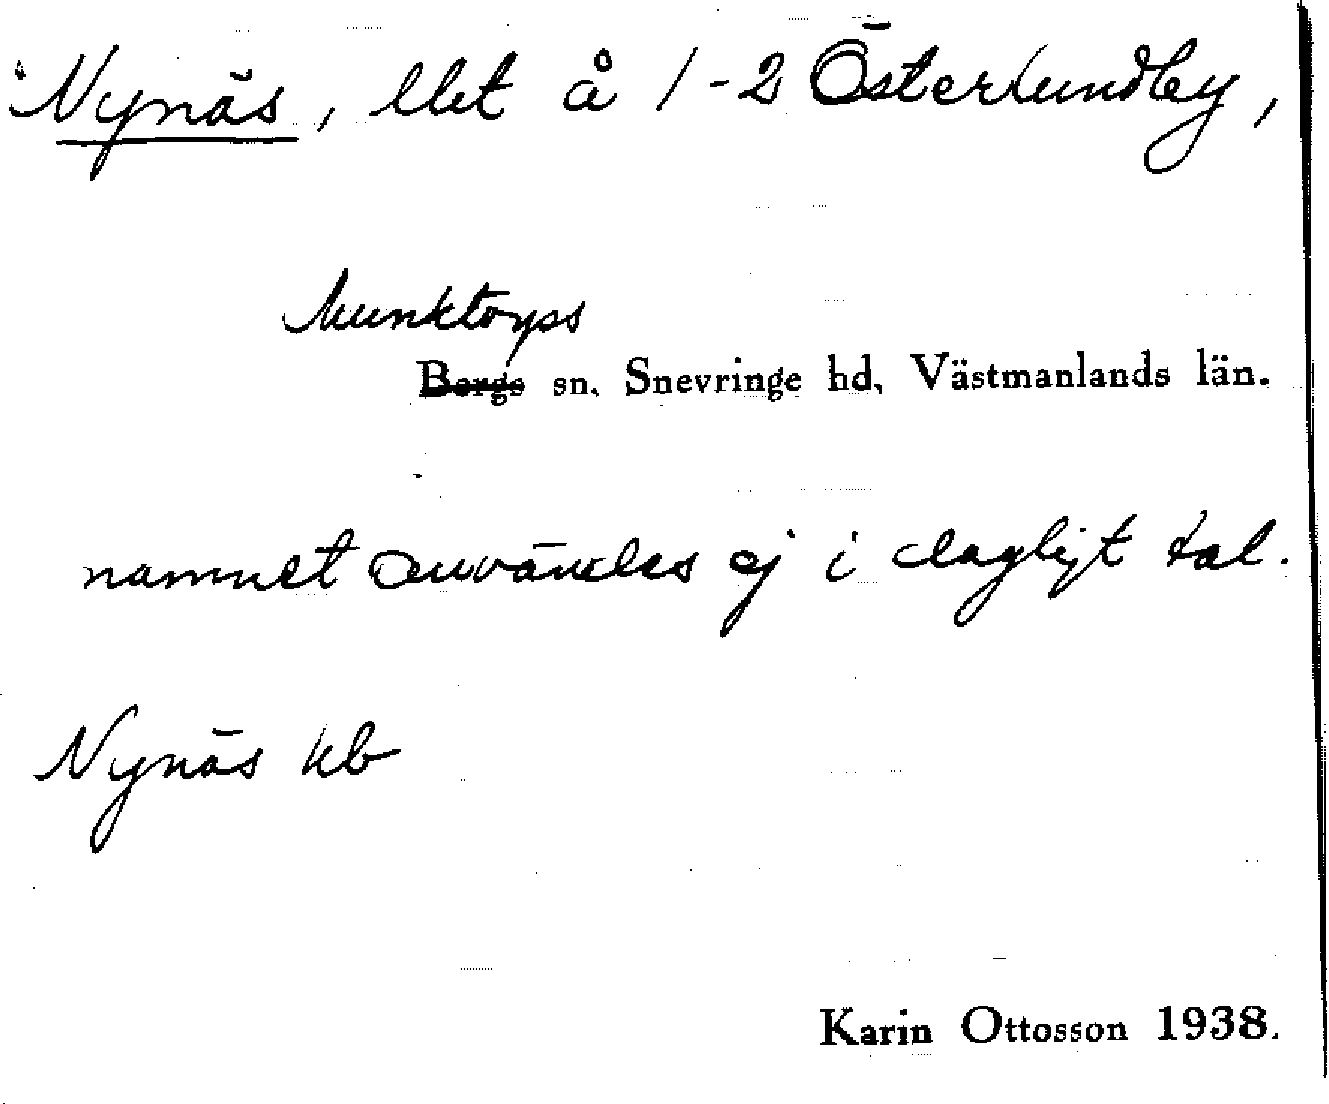 Nynäs, llet å 1-2 Österlundby,
Munktorps
Bergs sn. Snevringe hd, Västmanlands län.
namnet användes ej i dagligt tal.
Nynäs kb
Karin Ottosson 1938.